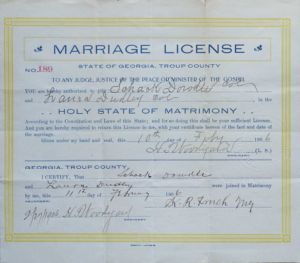 MARRIAGE LICENSE
STATE OF GEORGIA, TROUP COUNTY
No. 189
TO ANY JUDGE, JUSTICE OF THE PEACE OR MINISTER OF THE GOSPEL
YOU are hereby authorized to join Schack Dowdle Col
and Laura Dudley Col in the
HOLY STATE OF MATRIMONY
According to the Constitution and Laws of this State; and for so doing this shall be your sufficient License.
And you are hereby required to return this License to me, with your certificate hereon of the fact and date of
the marriage.
Given under my hand and seal, this 10th day of Feby 1906
H. T. Woodyard (L. S.)
GEORGIA, TROUP COUNTY.
I CERTIFY, That Schack Dowdle
and Laura Dudley were joined in Matrimony
by me, this 11th day of February 1906
H. T. Woodyard